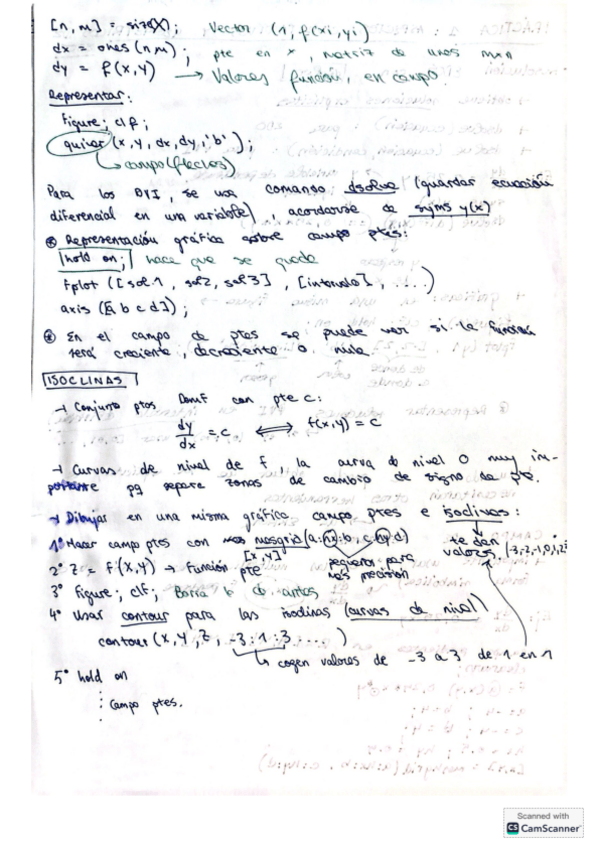 [n, m] = size(X); Vector (1, f(xi, yi)
dx = ones(n,m); pte en x matriz de unos m×n
dy = f(x,y) → Valores función, en campo.
Representar:
Figure; clf;
quiver(x, y, dx, dy, 'b');
→ campo (flechas)
Para los PVI, se usa comando dsolve (guardar ecuación
diferencial en una variable), acordarse de syms y(x)
Representación gráfica sobre campo ptes:
hold on; hace que se quede
fplot ([sol1, sol2, sol3], [intervalo], ...)
axis ([a b c d]);
En el campo de ptes se puede ver si la función
será creciente, decreciente o nula.
ISOCLINAS
→ Conjunto ptos Domf con pte c:
dy/dx = c ⟺ f(x,y) = c
→ Curvas de nivel de f, la curva de nivel 0 muy im-
portante pq separa zonas de cambio de signo de pte.
→ Dibujar en una misma gráfica campo ptes e isoclinas:
1º Hacer campo ptes con mesgrid (a:hx:b, c:hy:d) te dan
[x,y] pequeños para valores. [-3,-2,-1,0,1,2,3]
2º Z = F(X,Y) → Función pte más precisión
3º Figure; clf; Borra lo de antes
4º Usar contour para las isoclinas (curvas de nivel)
contour (X, Y, Z, -3:1:3, ...)
↳ cogen valores de -3 a 3 de 1 en 1
5º hold on
Campo ptes.
Scanned with
CS CamScanner